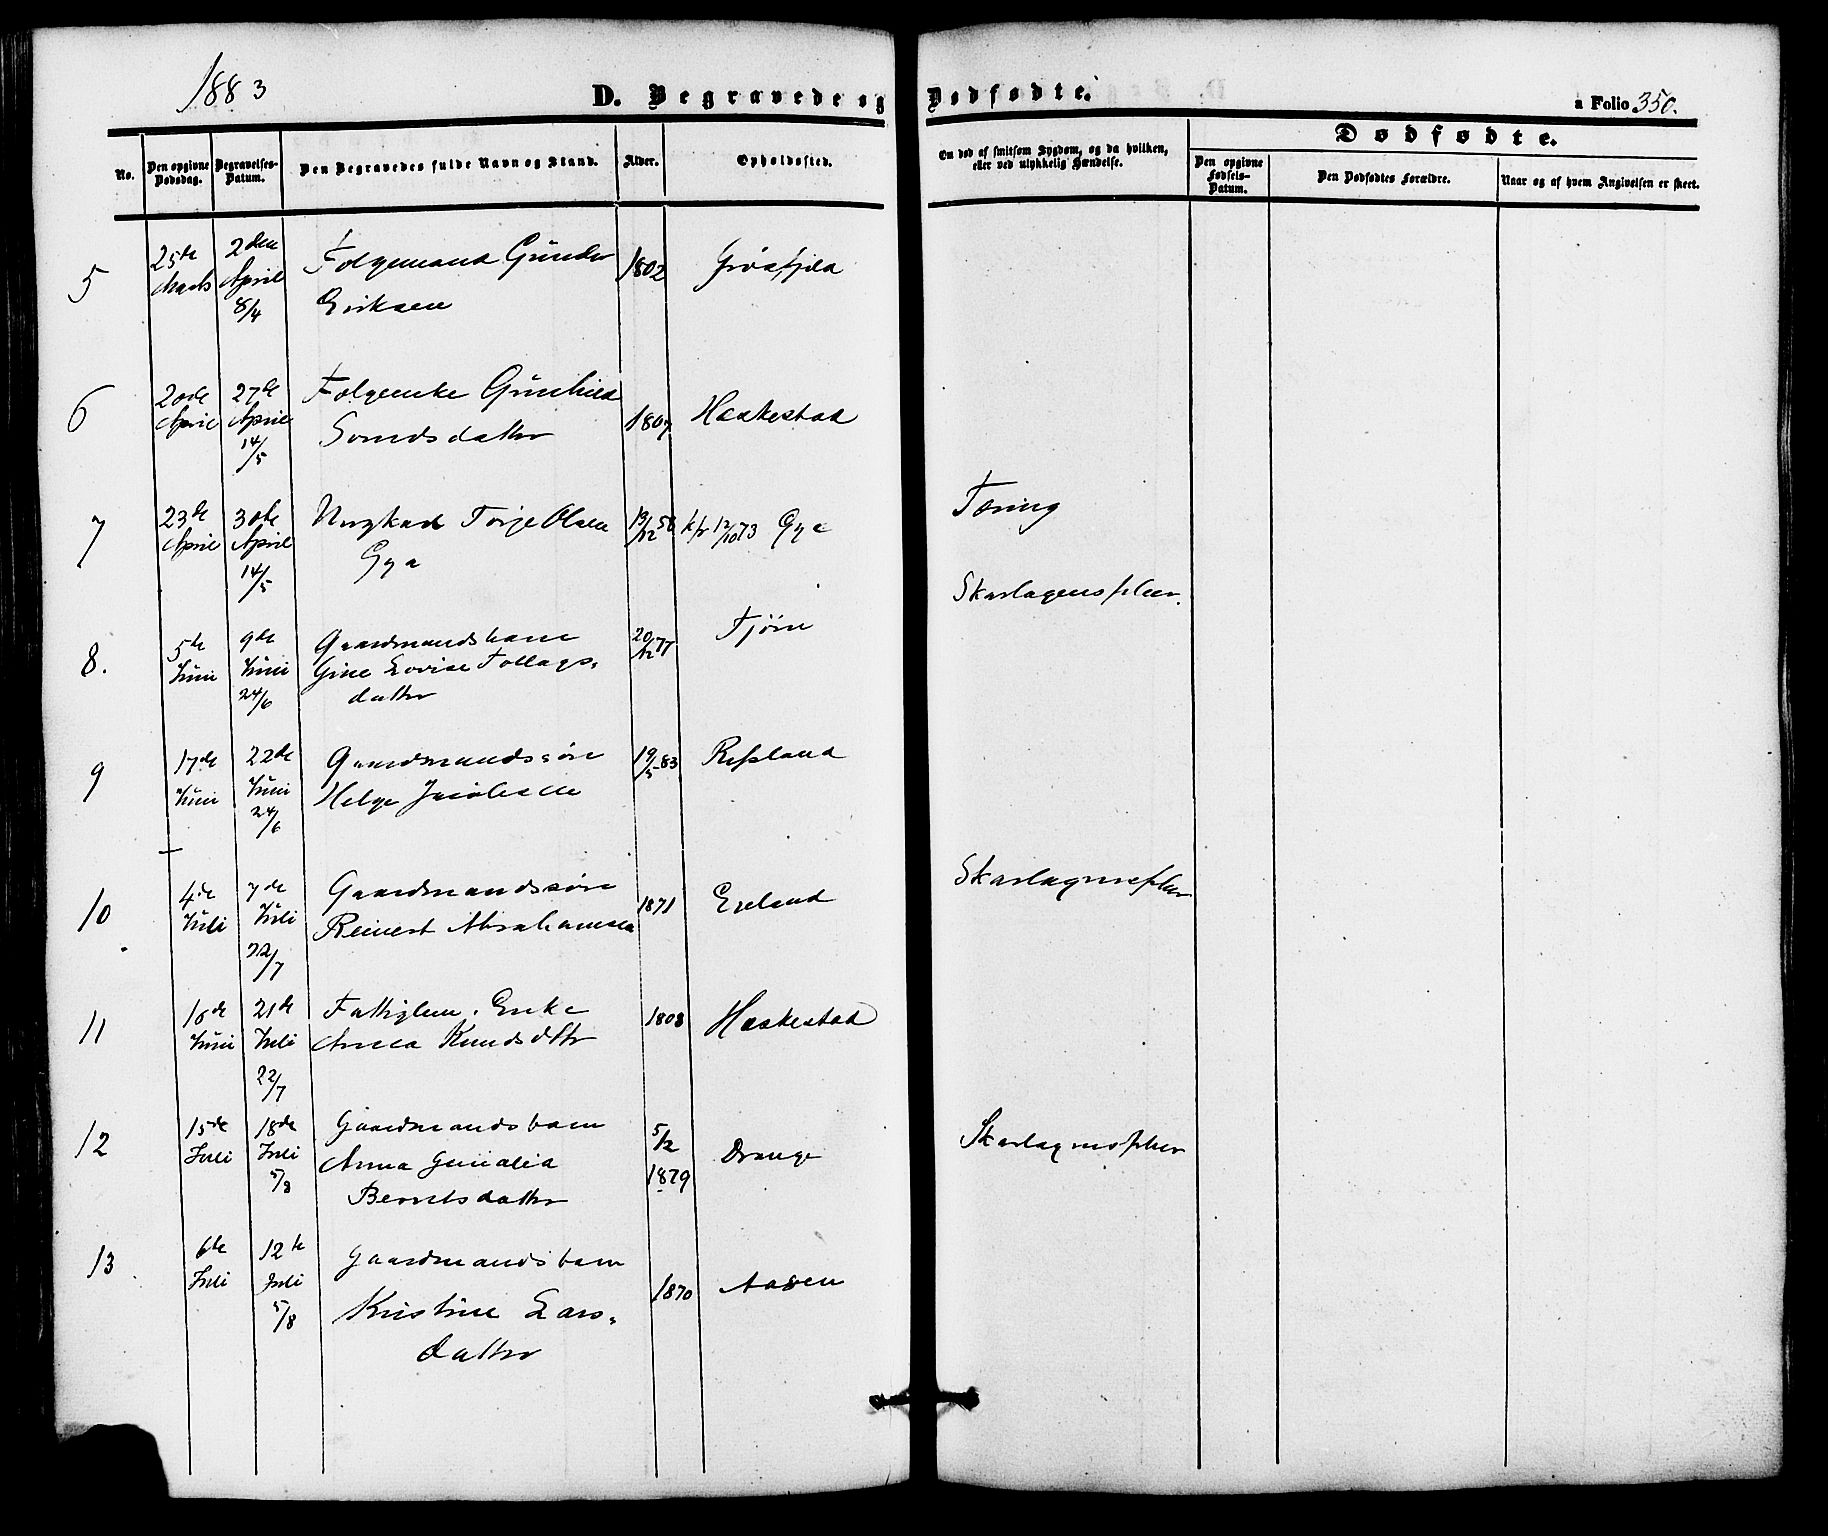 1883
D. Begravede og Dødfødte.
a Folio 350.
No.
Den opgivne Dødsdag.
Begravelses-Datum.
Den Begravedes fulde Navn og Stand.
Alder.
Opholdssted.
Om død af smitsom Sygdom, og da hvilken,
eller ved ulykkelig Hændelse.
Dødfødte.
Den opgivne Fødsels-Datum.
Den Dødfødtes Forældre.
Naar og af hvem Angivelsen er skeet.
5 25de Marts 2den April 8/4
Folgemand Gunder
Eriksen
1802
6 20de April 27de April 14/5
Folgeenke Gunhild
1807 Haakestad
7 23de April 30de April 14/5
Ungkarl Torje Olsen
Gya
19/12 58 kfr 12/10 73 Gya
Tæring
8. 5te Juni 9de Juni 24/6
Gaardmandsbarn
Gine Lovise Tollags-
datter
20/12 77 Tjørn
Skarlagensfeber.
9 17de Juni 22de Juni 24/6
Gaardmandssøn
Helge Jacobsen
19/5 83 Refsland
10 4de Juli 7de Juli 22/7
Gaardmandssøn
Reinert Abrahamsen
1871 Eieland
Skarlagensfeber
11 16de Juni 21de Juli 22/7
Fattiglem. Enke
Anna Knudsdtr
1808 Haakestad
12 15de Juli 18de Juli 5/8
Gaardmandsbarn
Anna
Berntsdatter
5/12
1879
Drange
Skarlagensfeber
13. 6te Juli 12te Juli 5/8
Gaardmandsbarn
Kristine Lars-
datter
1870 Aasen